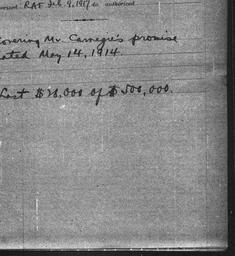 RAF Feb. 9, 1917 is authorized
covering Mr. Carnegie's promise
dated May 14, 1914.
Last $18,000 of $500,000.